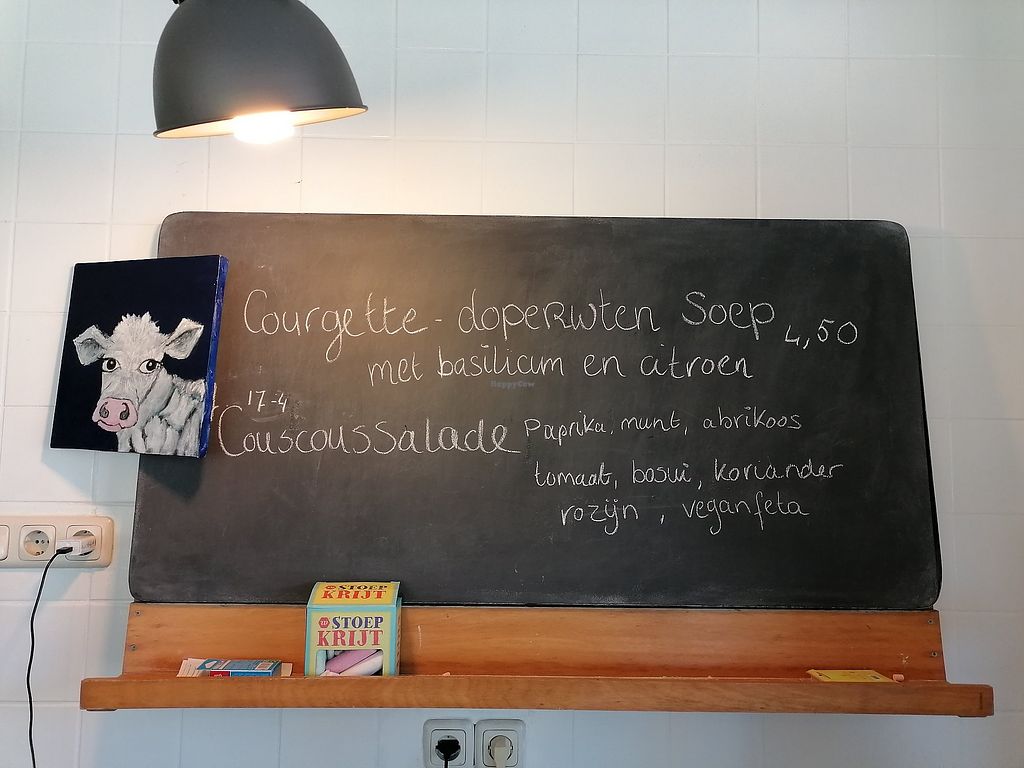 Courgette - doperwten Soep 4,50
met basilicum en citroen
17-4
Couscoussalade Paprika, munt, abrikoos
tomaat, bosui, koriander
rozijn, veganfeta
HappyCow
STOEP
KRIJT
STOEP
KRIJT